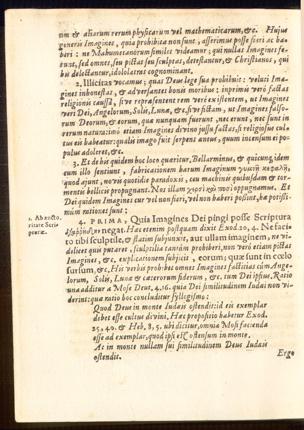 um & aliarum rerum physicarum vel mathematicarum, &c. Hujus
generis Imagines, quia prohibita non sunt, asserimus posse fieri ac ha-
beri: ne Mahumetanorum similes videamur; qui nullas Imagines fe-
runt, sed omnes, seu pictas seu sculptas, detestantur, & Christianos, qui
his delectantur, idololatras cognominant.
2. Illicitas vocamus; quas Deus lege sua prohibuit: veluti Ima-
gines inhonestas, & adversantes bonis moribus: inprimis verò factas
religionis caussâ, sive repræsentent rem verè existentem, ut Imagines
veri Dei, Angelorum, Solis, Lunæ, &c. sive fictam, ut Imagines falso-
rum Deorum, & eorum, quæ nunquam fuerunt, nec erunt, nec sunt in
rerum natura: imò etiam Imagines divino jussu factas, si religiosus cul-
tus eis habeatur: qualis imago fuit serpens aneus, quum incensum ei po-
pulus adoleret, &c.
3. Et de his quidem hoc loco quæritur, Bellarminus, & quicunq; idem
cum illo sentiunt, fabricationem harum Imaginum
quod ajunt, no vis quotidie paradoxis, ceu machinis quibusdam & tor-
mentis bellicis propugnant. Nos illam oppugnamus. Et
Dei quidem Imagines cur vel non fieri, vel non haberi possint, hæ potissi-
mùm rationes sunt:
1. Ab recto-
ritate Scri-
pturæ.
4. PRIMA, Quia Imagines Dei pingi posse Scriptura
negat. Hac etenim postquam dixit Exod. 20, 4. Ne faci-
to tibi sculptile, & statim subjunxit, aut ullam imaginem, ne vi-
delicet quis putaret, sculptilia tantùm prohiberi, non verò etiam pictas
Imagines, &c. explicationem subjicit, eorum; quæ sunt in cœlo
sursum, &c. His verbis prohibet omnes Imagines factitias cùm Ange-
lorum, Solis, Lunæ & cæterorum siderum, &c. tum Dei ipsius. Ratio
una additur à Mose Deut. 4, 16. quia Dei similitudinem Iudæi non vi-
derint: qua ratio hoc concluditur syllogismo:
Quod Deus in monte Iudæis ostendit: id eis exemplar
debet esse cultus divini. Hæc propositio habetur Exod.
25, 40. & Heb. 8, 5. ubi dicitur, omnia Mosi facienda
esse ad exemplar, quod ipsi est ostensum in monte.
At in monte nullam sui similitudinem Deus Iudæis
ostendit.
Ergo